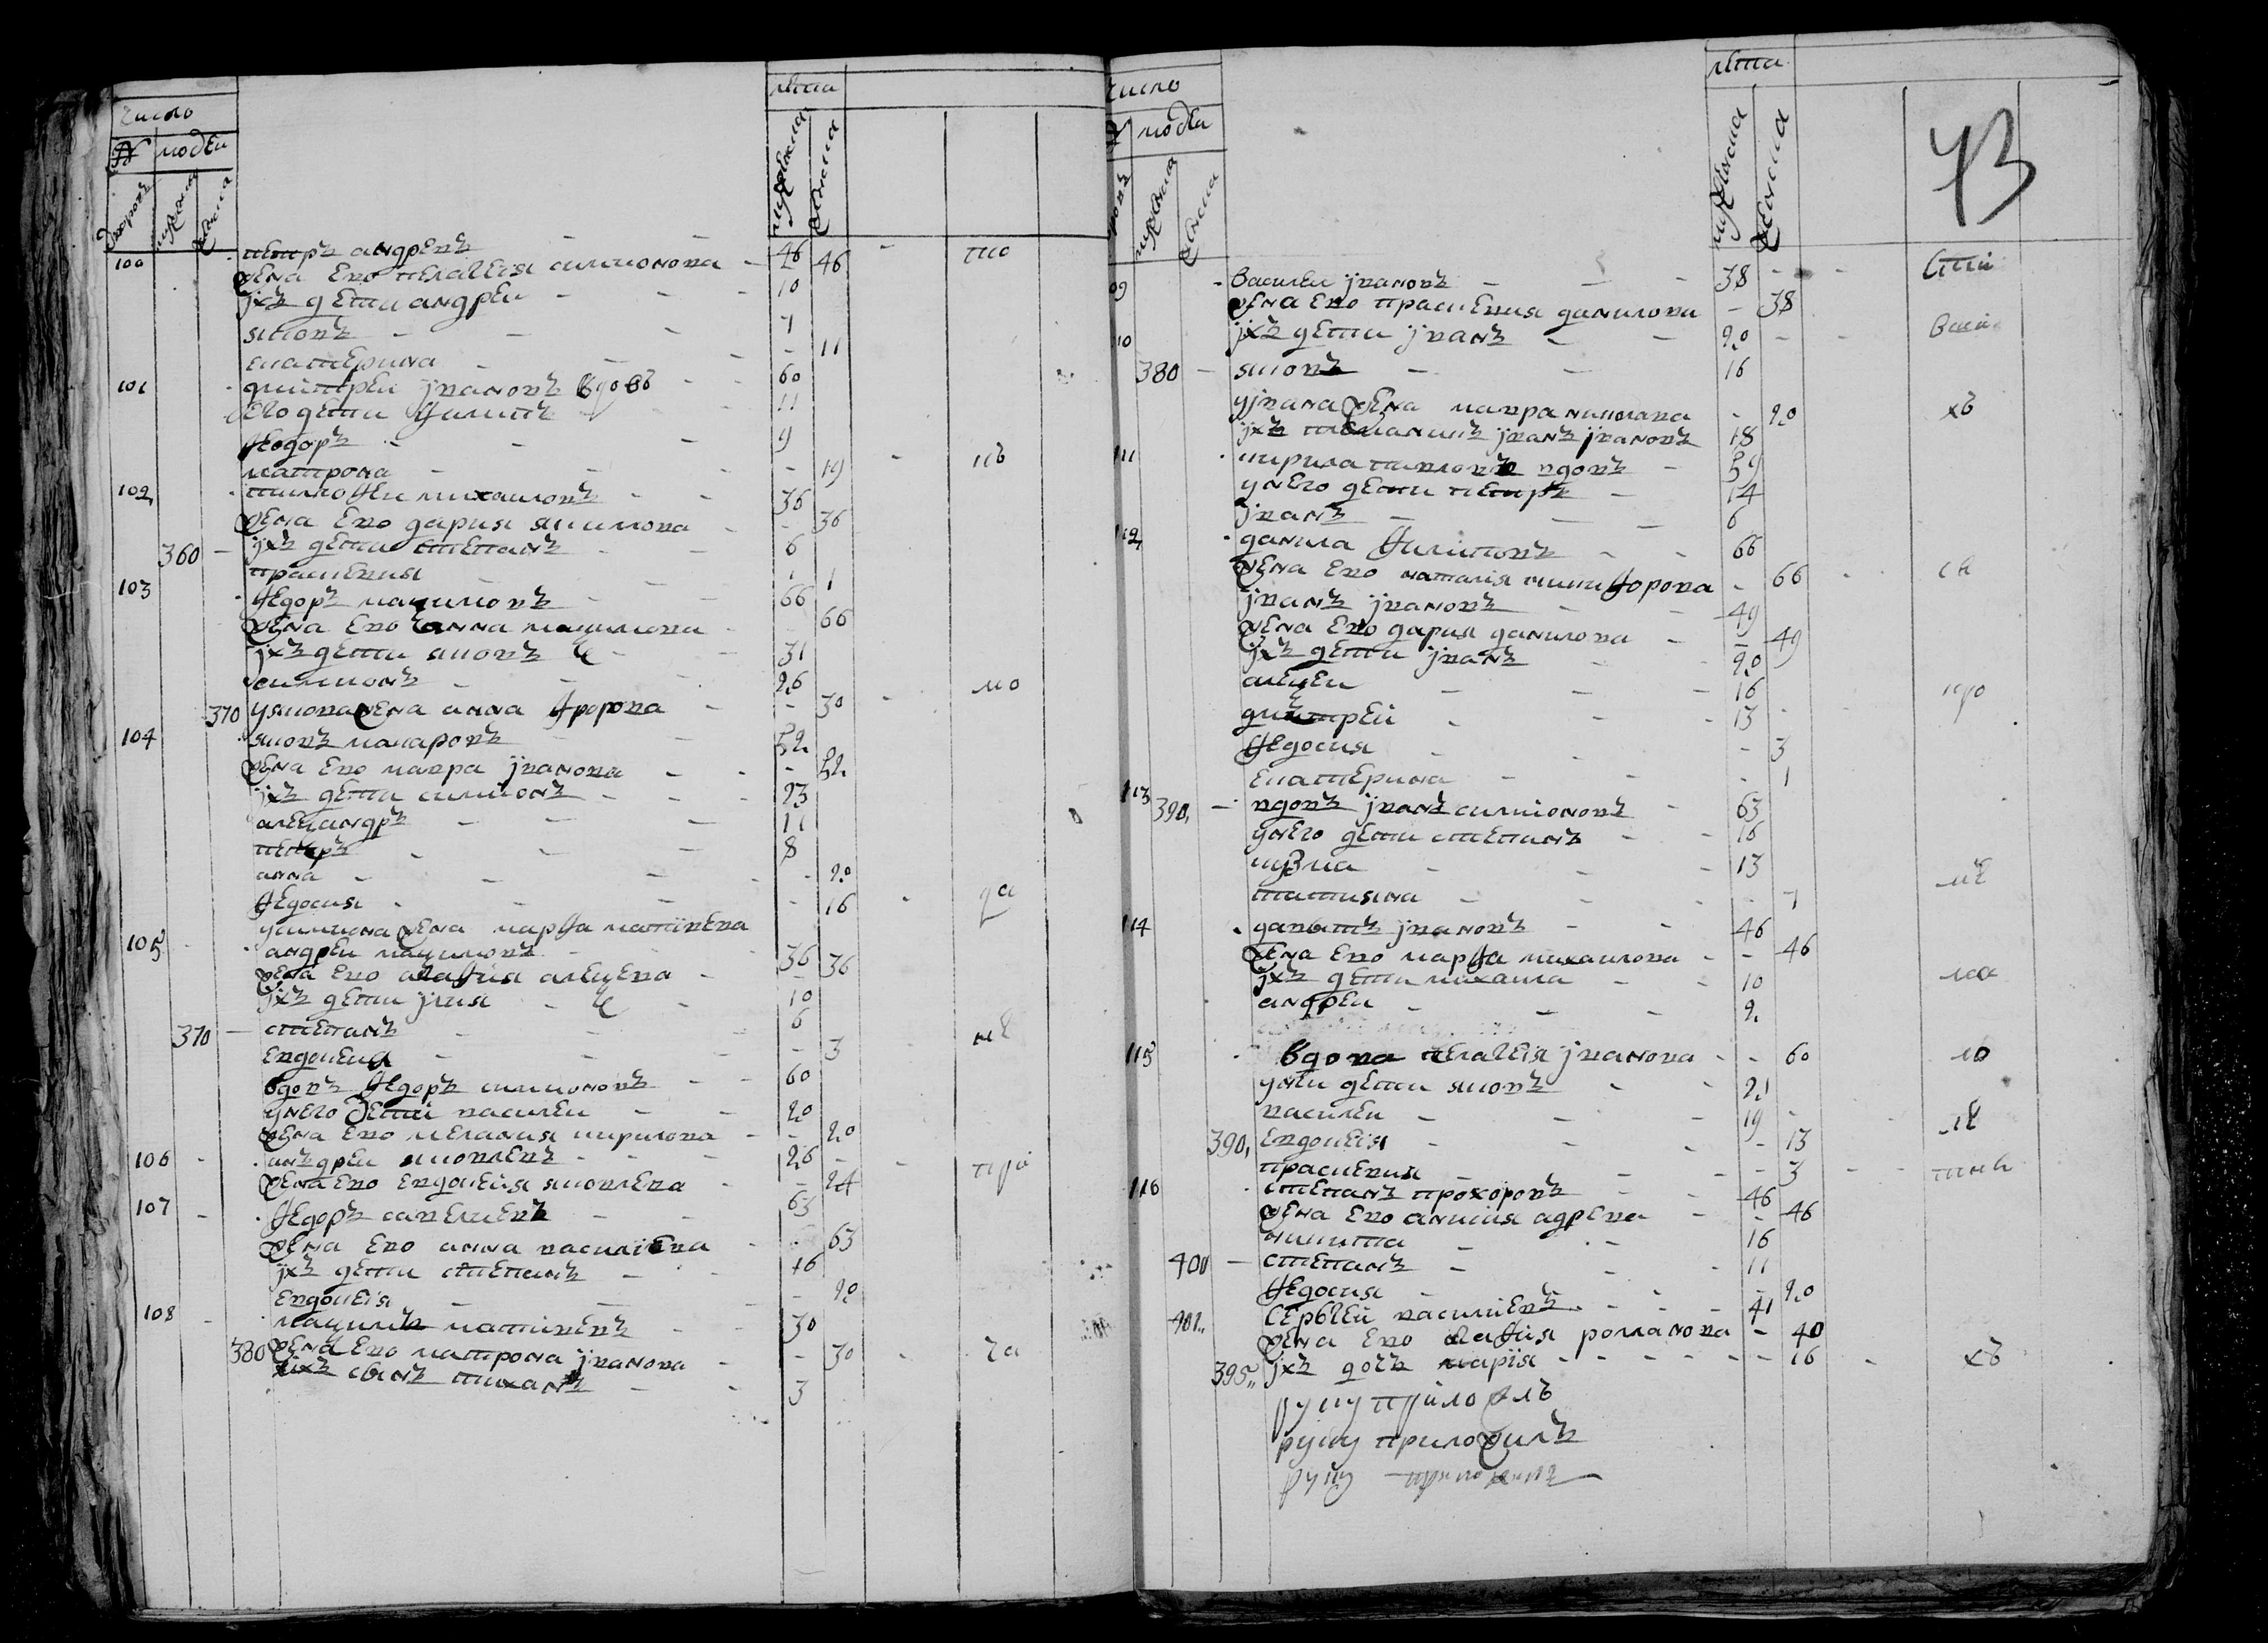 число
№ людей
дворовъ
мужеска
женска
лѣта
мужеска
женска
100 петръ андреевъ 46 по
жена ево пелагеия симионова 46
ихъ дети андреи 10
яковъ 7
екатерина 11
101 дмитреи ивановъ вдовъ 60
его дети филипъ 11
феодоръ 9
матрона 19
102 тимофеи михаиловъ 36
жена ево дария якимова 36
360 ихъ дети степанъ 6
прасковия 1
103 федоръ максимовъ 66
жена ево анна максимова 66
ихъ дети яковъ 31
симионъ 26
370 у якова жена анна фролова 30
104 яковъ макаровъ 52
жена ево мавра иванова 52
ихъ дети симионъ 23
александръ 11
петръ 8
анна 20
федосия 16
у симиона жена марфа матвиева
105 андреи максимовъ 36
жена ево агафия алексеева 36
ихъ дети илия 10
370 степанъ 6
евдокеия 3
вдовъ федоръ симионовъ 60
у него дети василеи 20
жена ево мелания кирилова 20
106 андреи яковлевъ 26
жена ево евдокеия яковлева 24
107 федоръ савелиевъ 63
жена ево анна василиева 63
ихъ дети степанъ 16
евдокеия 20
108 максимъ матвиевъ 30
380 жена ево матрона иванова 30
ихъ сынъ тиханъ 3
число
людей
мужеска
женска
лѣта
мужеска
женска
43
09 василеи ивановъ 38
жена ево прасковия данилова 38
10 ихъ дети иванъ 20
380 яковъ 16
у ивана жена мавра николаева 20 хъ
ихъ племаникъ иванъ ивановъ 18
111 кирила павловъ вдовъ 59
у него дети петръ 14
иванъ 6
112 данила филиповъ 66
жена ево наталия никифорова 66
иванъ ивановъ 49
жена ево дария данилова 49
ихъ дети иванъ 20
алексеи 16
дмитреи 13
федосия 3
екатерина 1
113 390 вдовъ иванъ симионовъ 63
у него дети степанъ 16
кузма 13
татияна 7
114 давыдъ ивановъ 46
жена ево марфа михаилова 46
ихъ дети михаила 10
андреи 2
115 вдова пелагея иванова 60
у неи дети яковъ 21
василеи 19
390 евдокеия 13
прасковия 3
116 степанъ прохоровъ 46
жена ево анисия адреева 46
никита 16
400 степанъ 11
федосия 20
401 сергеи василиевъ 41
жена ево агафия романова 40
395 ихъ дочь мария 16 хъ
руку приложилъ
руку приложилъ
руку приложилъ